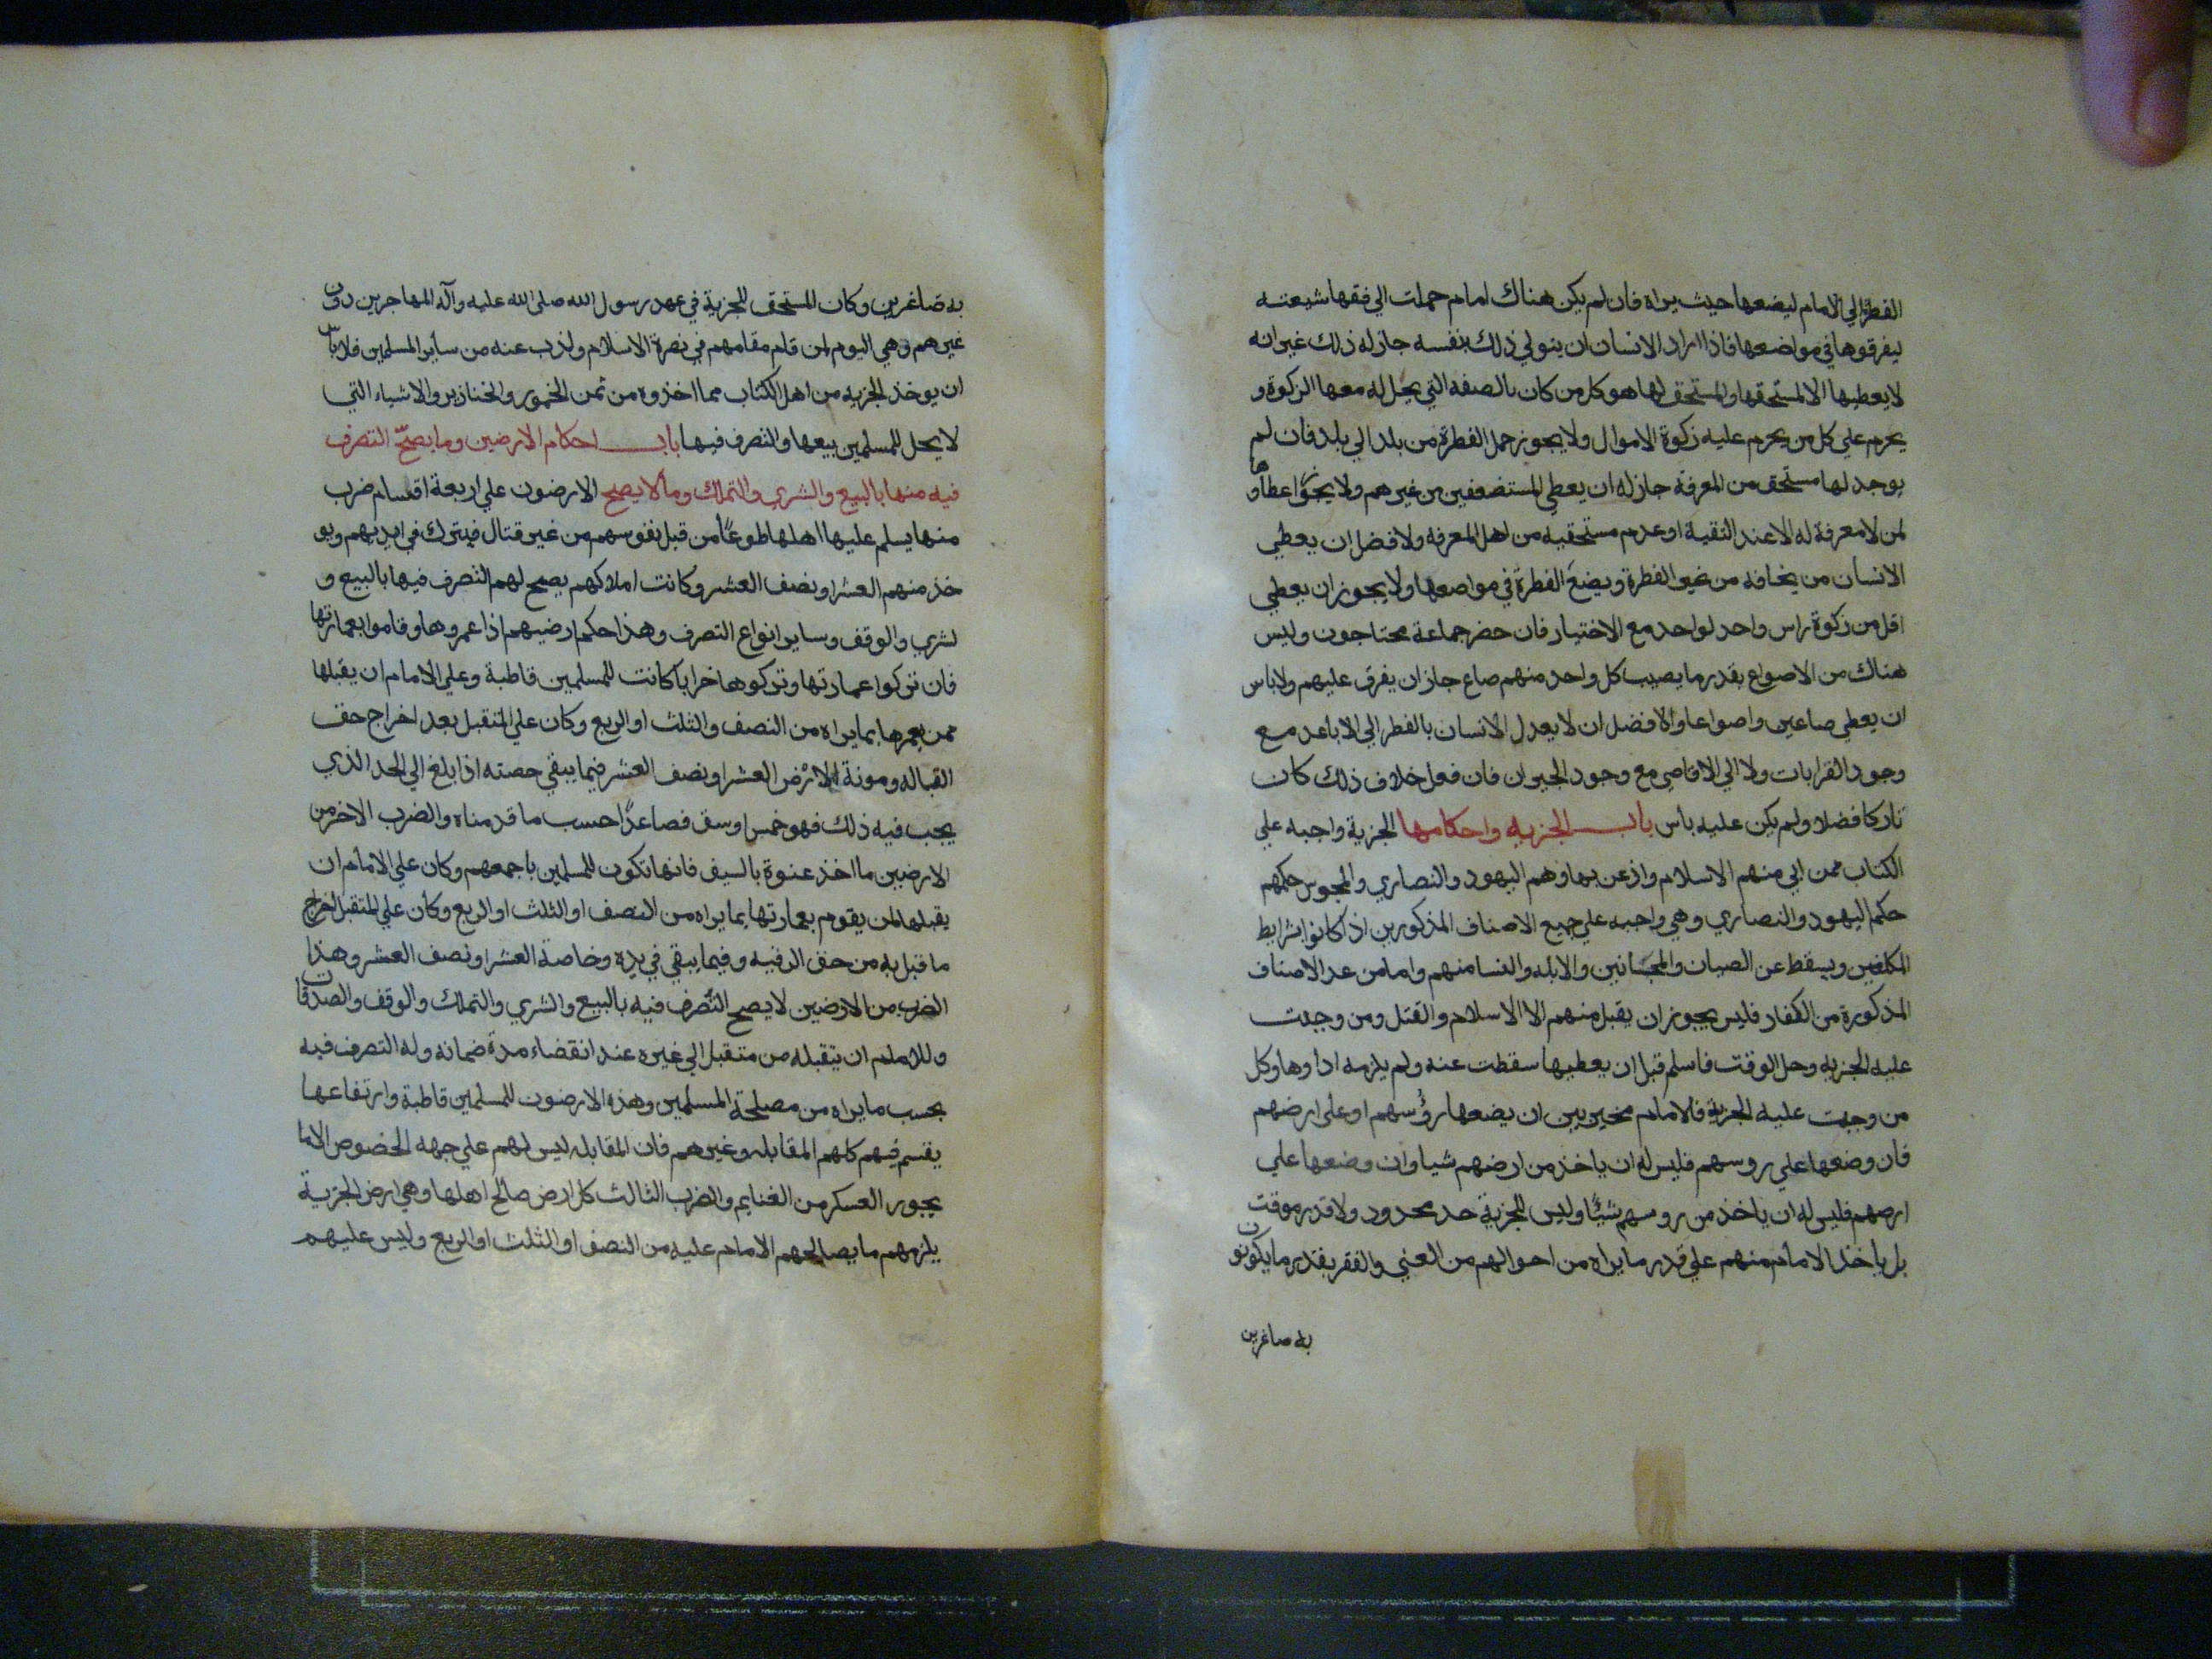 الفطرة الي الامام ليضعها حيث يراه فان لم يكن هناك امام حملت الي فقها شيعته
ليفرقوها في مواضعها فاذا اراد الانسان ان يتولي ذلك بنفسه جاز له ذلك غير انه
لا يعطيها الا لمستحقها والمستحق لها هو كل من كان بالصفه التي يحل له معها الزكوة و
يحرم علي كل من يحرم عليه زكوة الاموال ولا يجوز حمل الفطرة من بلد الي بلد فان لم
يوجد لها مستحق من المعرفة جاز له ان يعطي المستضعفين من غيرهم ولا يجوز اعطاؤها
لمن لا معرفة له الا عند التقية او عدم مستحقيه من اهل المعرفه ولافضل ان يعطي
الانسان من يخافه من غير الفطرة ويضع الفطرة في مواضعها ولا يجوز ان يعطي
اقل من زكوة راس واحد لواحد مع الاختيار فان حضر جماعة محتاجون وليس
هناك من الاصواع بقدر ما يصيب كل واحد منهم صاع جاز ان يفرق عليهم ولا باس
ان يعطي صاعين واصواعا والافضل ان لا يعدل الانسان بالفطر الي الاباعد مع
وجود القرابات ولا الي الاقاصي مع وجود الجيران فان فعل خلاف ذلك كان
تاركا فضلا ولم يكن عليه باس باب الجزيه واحكامها الجزية واجبه علي
الكتاب ممن ابي منهم الاسلام واذعن بها وهم اليهود والنصاري والمجوس حكمهم
حكم اليهود والنصاري وهي واجبه علي جميع الاصناف المذكورين اذا كانوا بشرايط
المكلفين ويسقط عن الصبيان والمجانين والابله والنسا منهم واما من عد الاصناف
المذكورة من الكفار فليس يجوز ان يقبل منهم الا الاسلام والقتل ومن وجبت
عليه الجزيه وحل الوقت فاسلم قبل ان يعطيها سقطت عنه ولم يلزمه اداوها وكل
من وجبت عليه الجزية فالامام مخير بين ان يضعها رؤسهم او علي ارضهم
فان وضعها علي روسهم فليس له ان ياخذ من ارضهم شيا وان وضعها علي
ارضهم فليس له ان ياخذ من روسهم شيئا وليس للجزية حد محدود ولا قدر موقت
بل ياخذ الامام منهم علي قدر ما يراه من احوالهم من الغني والفقر بقدر ما يكونون
به صاغرين
به صاغرين وكان المستحق للجزية في عهد رسول الله صلى الله عليه وآله المهاجرين دون
غيرهم وهي اليوم لمن قام مقامهم في نصرة الاسلام ولذب عنه من ساير المسلمين فلا باس
ان يوخذ الجزيه من اهل الكتاب مما اخذوه من ثمن الخمور والخنازير والاشياء التي
لا يحل للمسلمين بيعها والتصرف فيها باب احكام الارضين وما يصح التصرف
فيه منها بالبيع والشري والتملك وما لا يصح الارضون علي اربعة اقسام ضرب
منها يسلم عليها اهلها طوعا من قبل نفوسهم من غير قتال فيترك في ايديهم ويو
خذ منهم العشر او نصف العشر وكانت املاكهم يصح لهم التصرف فيها بالبيع و
لشري والوقف وساير انواع التصرف وهذا حكم ارضيهم اذا عمروها وقاموا بعمارتها
فان تركوا عمارتها وتركوها خرابا كانت للمسلمين قاطبة وعلي الامام ان يقبلها
ممن يعمرها بما يراه من النصف والثلث او الربع وكان علي المتقبل بعد اخراج حق
القباله ومونة الارض العشر او نصف العشر فيما يبقي حصته اذا بلغ الي الحد الذي
يجب فيه ذلك فهو خمس اوسق فصاعدا حسب ما قدمناه والضرب الاخر من
الارضيين ما اخذ عنوة بالسيف فانها تكون للمسلمين باجمعهم وكان علي الامام ان
يقبلها لمن يقوم بعمارتها بما يراه من النصف او الثلث او الربع وكان علي المتقبل اخراج
ما قبل به من حق الرقبه وفيما يبقي في يده وخاصة العشر او نصف العشر وهذا
الضرب من الارضين لا يصح التصرف فيه بالبيع والشري والتملك والوقف والصدقات
وللامام ان يتقبله من متقبل الي غيره عند انقضاء مدة ضمانه وله التصرف فيه
بحسب ما يراه من مصلحة المسلمين وهذه الارضون للمسلمين قاطبة وارتفاعها
يقسم فيهم كلهم المقابله وغيرهم فان المقابله ليس لهم علي جهه الخصوص الا ما
يجوز العسكر من الغنايم والضرب الثالث كل ارض صالح اهلها وهي ارض الجزية
يلزمهم ما يصالحهم الامام عليه من النصف او الثلث او الربع وليس عليهم